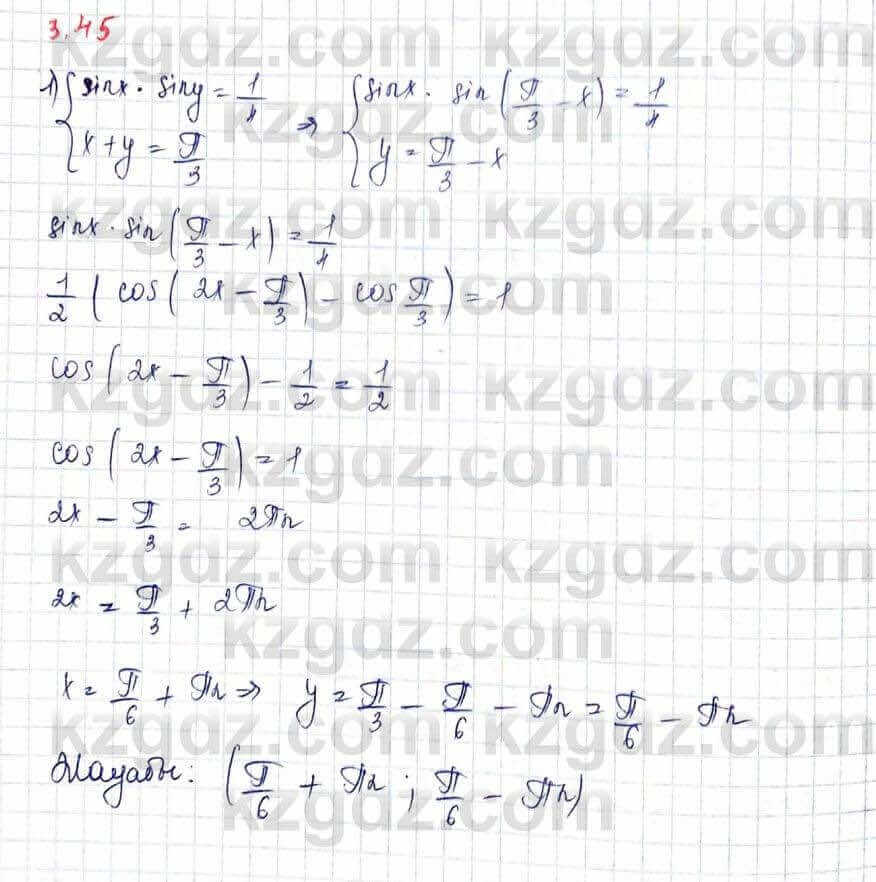 3.45
1) { sinx · siny = 1/4 ⇒ { sinx · sin(π/3 − x) = 1/4
{ x + y = π/3 { y = π/3 − x
sinx · sin(π/3 − x) = 1/4
1/2 ( cos( 2x − π/3) − cos π/3) = 1
cos( 2x − π/3) − 1/2 = 1/2
cos( 2x − π/3) = 1
2x − π/3 = 2πn
2x = π/3 + 2πn
x = π/6 + πn ⇒ y = π/3 − π/6 − πn = π/6 − πn
Жауабы: (π/6 + πn ; π/6 − πn)
kzgdz.com kzgdz.com
kzgdz.com
kzgdz.com kzgdz.com
kzgdz.com
kzgdz.com kzgdz.com
kzgdz.com
kzgdz.com kzgdz.com
kzgdz.com
kzgdz.com kzgdz.com
kzgdz.com